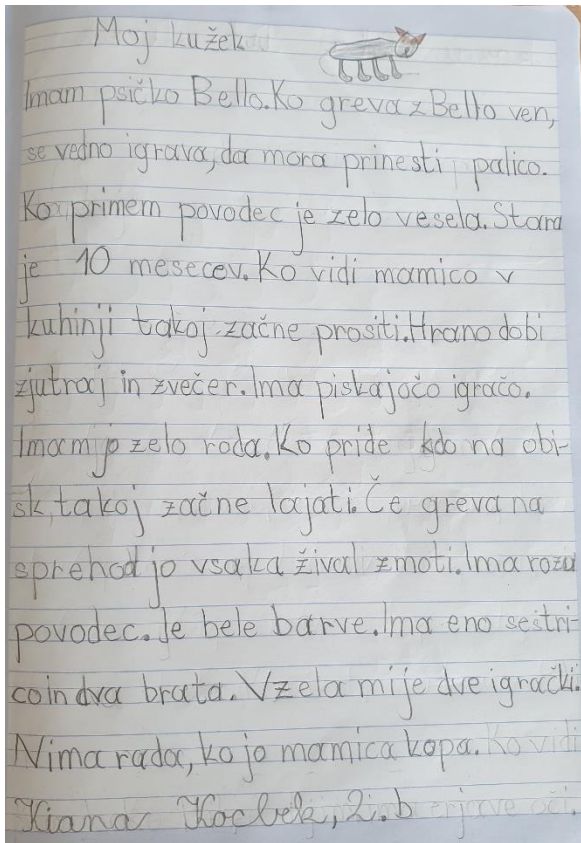 Moj kužek
Imam psičko Bello. Ko greva z Bello ven,
se vedno igrava, da mora prinesti palico.
Ko primem povodec je zelo vesela. Stara
je 10 mesecev. Ko vidi mamico v
kuhinji takoj začne prositi. Hrano dobi
zjutraj in zvečer. Ima piskajočo igračo.
Imam jo zelo rada. Ko pride kdo na obi-
sk, takoj začne lajati. Če greva na
sprehod jo vsaka žival zmoti. Ima roza
povodec. Je bele barve. Ima eno sestri-
co in dva brata. Vzela mi je dve igrački.
Nima rada, ko jo mamica kopa. Ko vidi
Kiana Kocbek, 2. b erjave oči.